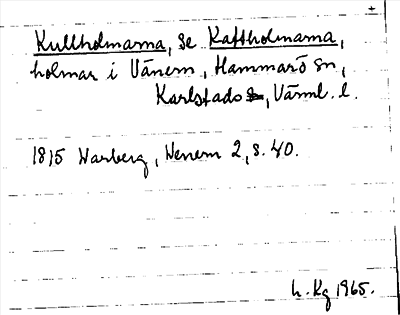 +
Kullholmarna, se Kaffholmarna,
holmar i Vänern, Hammarö sn,
Karlstads, Värml. l.
1815 Warberg, Wenern 2, s. 40.
L. Kg 1965.